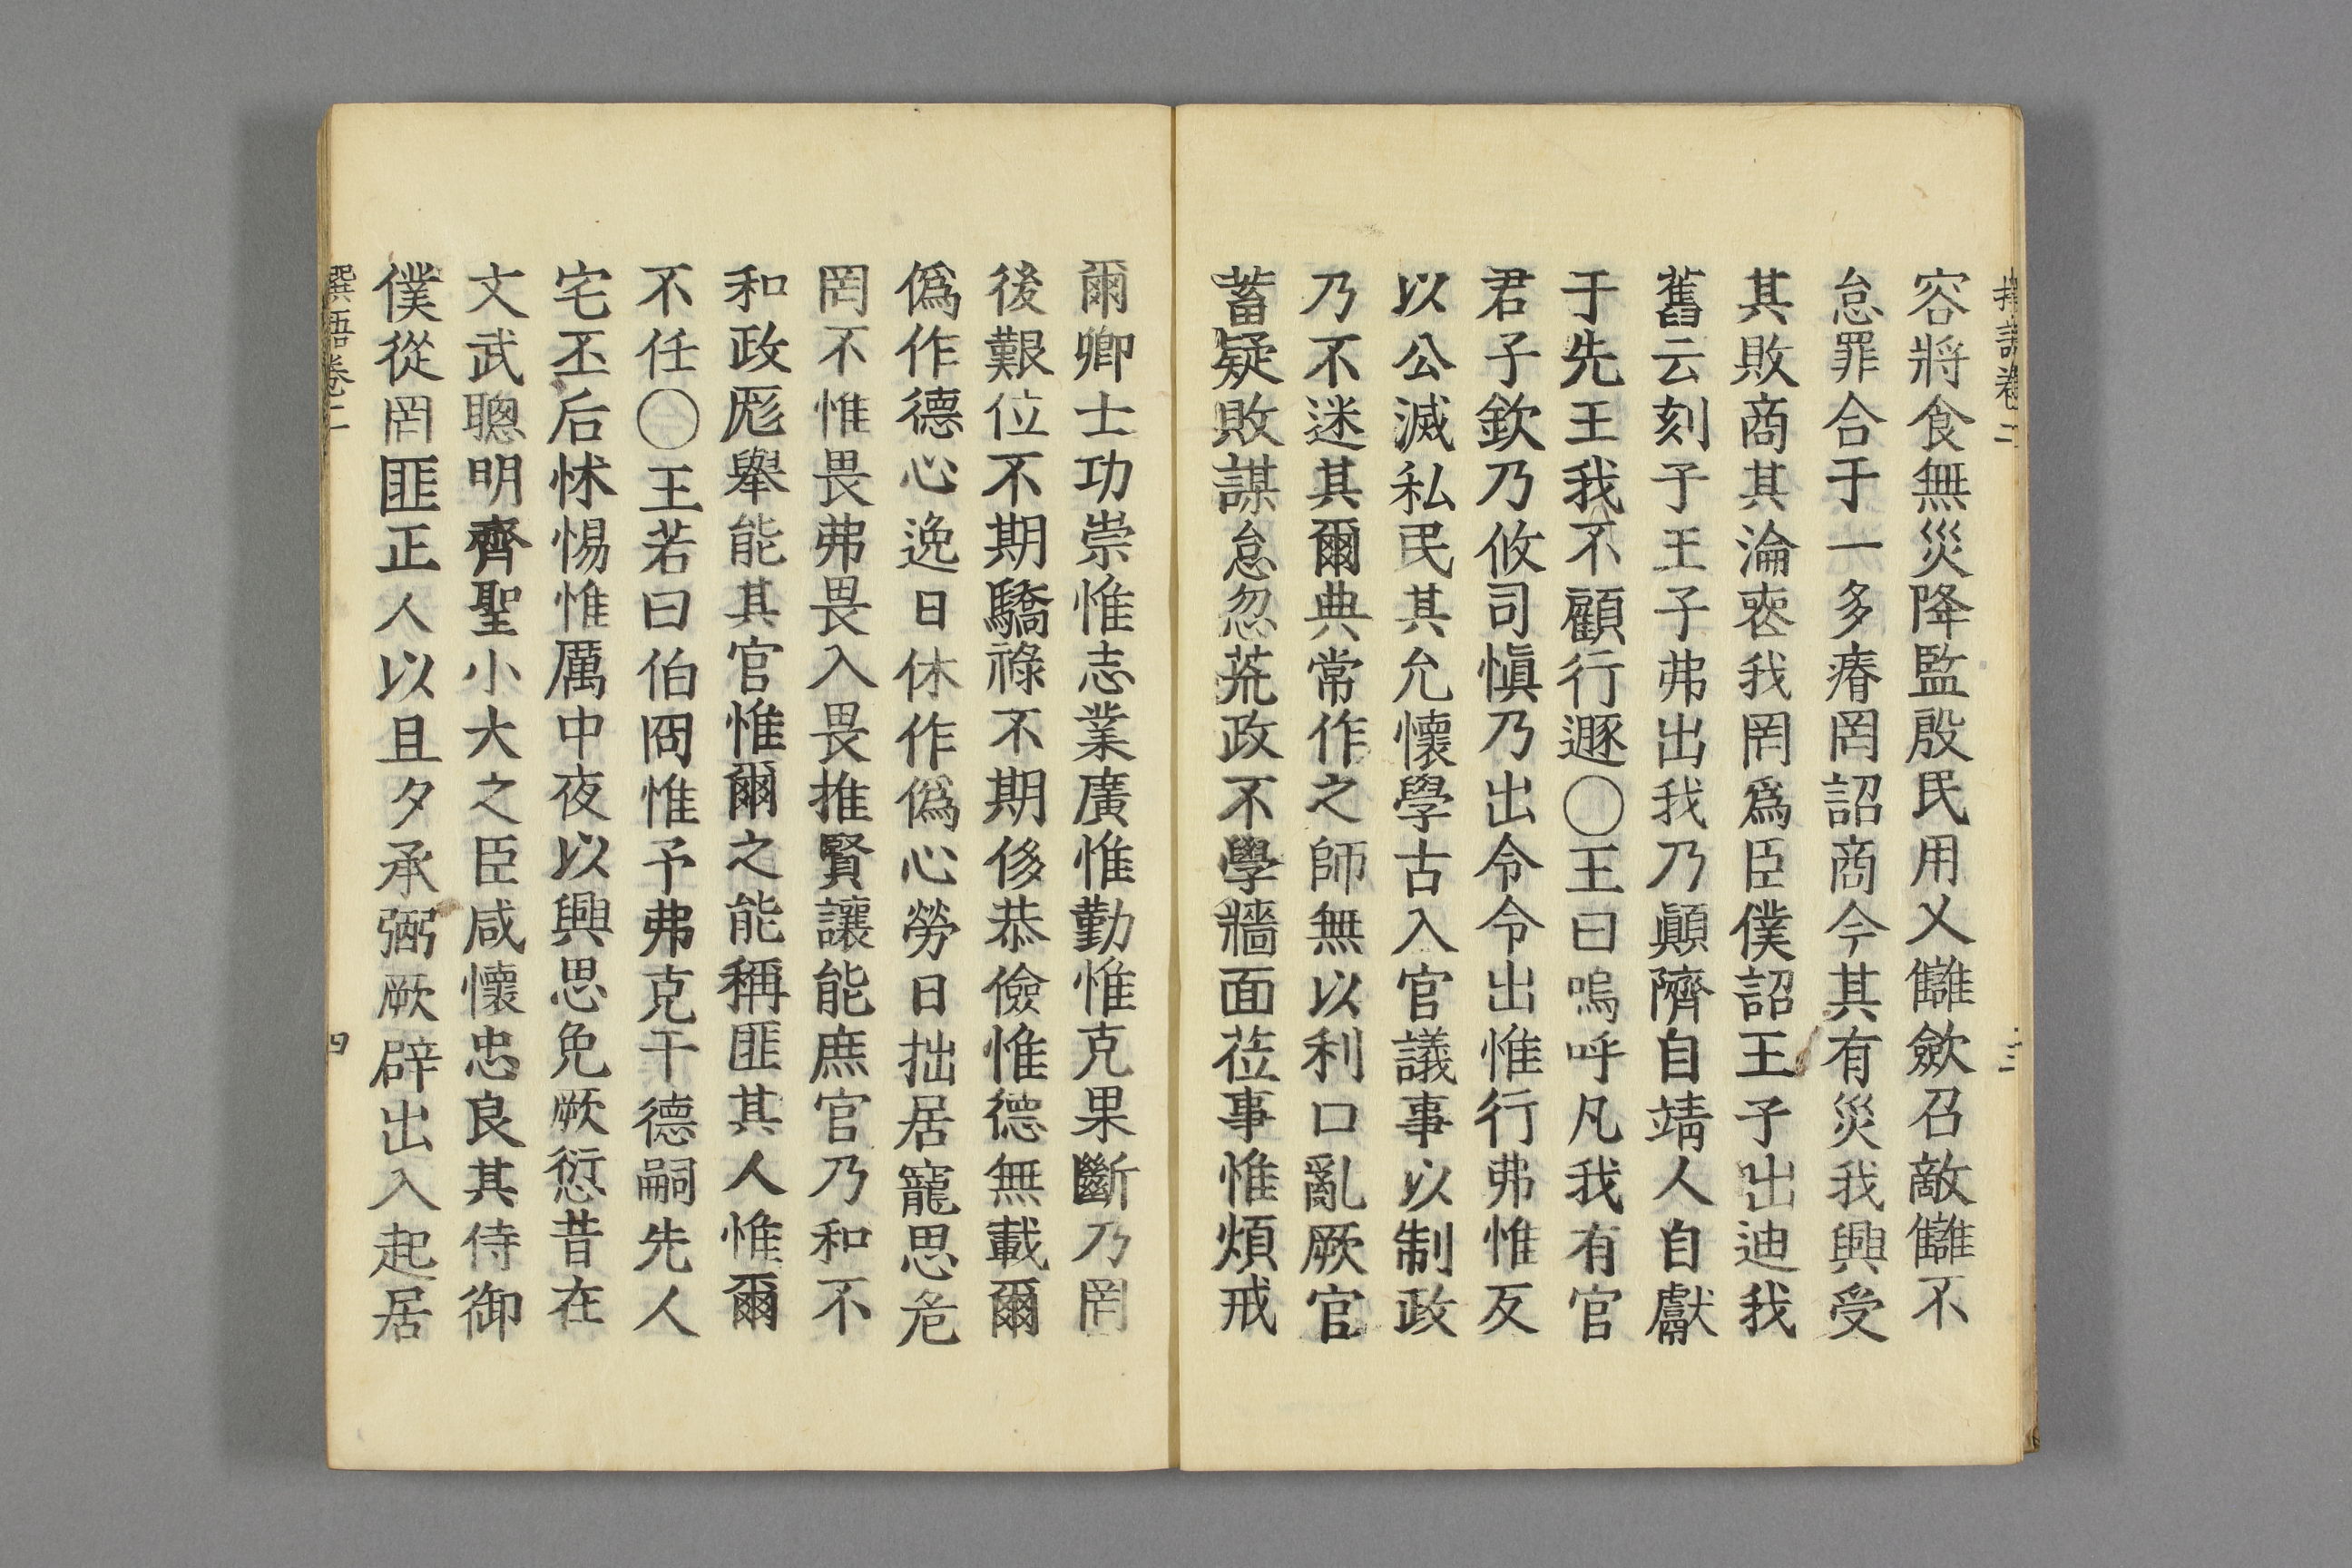 容將食無災降監殷民用乂讎斂召敵讎不
怠罪合于一多瘠罔詔商今其有災我興受
其敗商其淪喪我罔爲臣僕詔王子出迪我
舊云刻子王子弗出我乃顚隮自靖人自獻
于先王我不顧行遯○王曰嗚呼凡我有官
君子欽乃攸司愼乃出令令出惟行弗惟反
以公滅私民其允懷學古入官議事以制政
乃不迷其爾典常作之師無以利口亂厥官
蓄疑敗謀怠忽荒政不學牆面莅事惟煩戒
爾卿士功崇惟志業廣惟勤惟克果斷乃罔
後艱位不期驕祿不期侈恭儉惟德無載爾
僞作德心逸日休作僞心勞日拙居寵思危
罔不惟畏弗畏入畏推賢讓能庶官乃和不
和政厖舉能其官惟爾之能稱匪其人惟爾
不任○王若曰伯冏惟予弗克于德嗣先人
宅丕后怵惕惟厲中夜以興思免厥愆昔在
文武聰明齊聖小大之臣咸懷忠良其侍御
僕從罔匪正人以旦夕承弼厥辟出入起居
撰語卷二
四